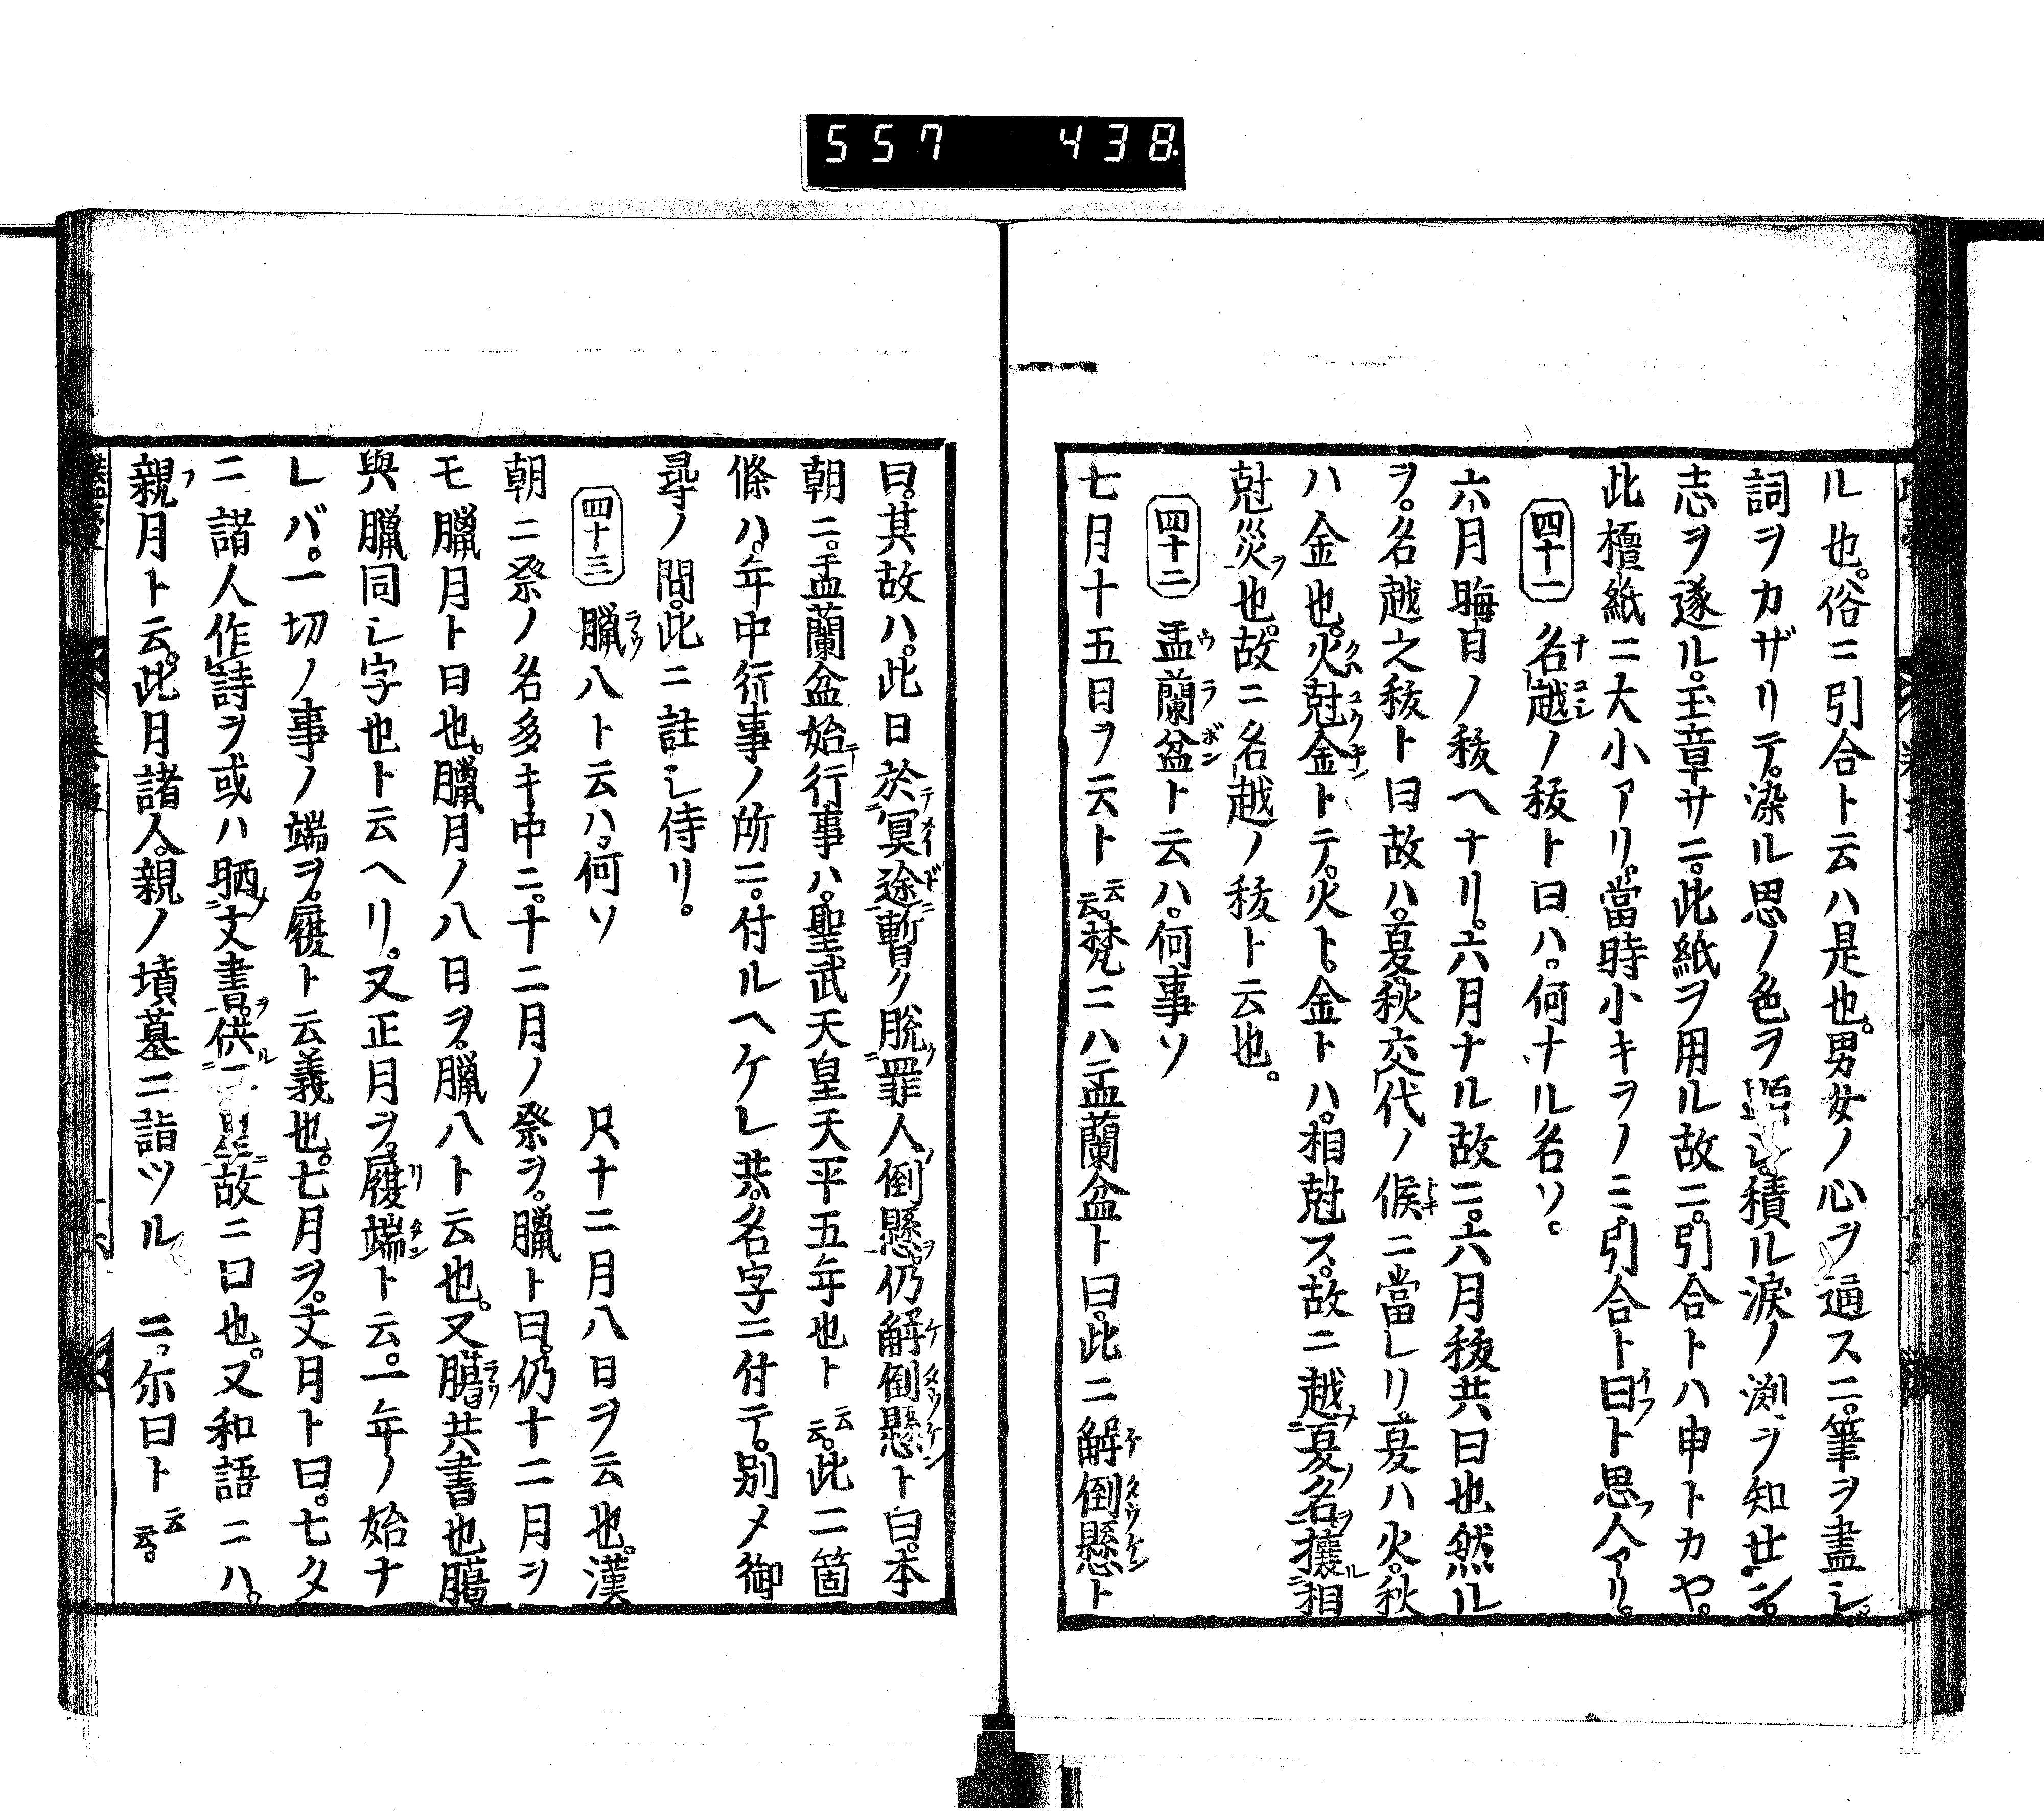 557 438
ル也。俗ニ引合ト云ハ是也。男女ノ心ヲ通スニ。筆ヲ盡シ。
詞ヲカザリテ。染ル思ノ色ヲ顕シ。積ル涙ノ渕ヲ知せン。
志ヲ遂ル。玉章サニ。此紙ヲ用ル故ニ。引合トハ申トカヤ。
此檀紙ニ大小アリ。當時小キヲノミ。引合ト曰ト思人アリ。
四十一 名越ノ秡ト曰ハ。何ナル名ソ。
六月晦日ノ秡ヘナリ。六月ナル故ニ。六月秡共曰也然ル
ヲ。名越之秡ト曰故ハ。夏秋交代ノ候ニ當レリ。夏ハ火。秋
ハ金也。火尅金トテ。火ト。金トハ。相尅ス。故ニ越夏名攘相
尅災也。故ニ名越ノ秡ト云也。
四十二 盂蘭盆ト云ハ。何事ソ
七月十五日ヲ云ト云云。梵ニハ盂蘭盆ト曰。此ニ解倒懸ト
曰。其故ハ。此日於冥途暫ク脱罪人倒懸。仍解倒懸ト曰。本
朝ニ。盂蘭盆始行事ハ。聖武天皇天平五年也ト云云。此二箇
條ハ。年中行事ノ所ニ。付ルヘケレ共。名字ニ付テ。別メ御
尋ノ間。此ニ註シ侍リ。
四十三 臘八ト云ハ。何ソ 只十二月八日ヲ云也。漢
朝ニ祭ノ名多キ中ニ。十二月ノ祭ヲ。臘ト曰。仍十二月ヲ
モ臘月ト曰也。臘月ノ八日ヲ。臘八ト云也。又臈共書也臈
與臘同シ字也ト云ヘリ。又正月ヲ。履端ト云。一年ノ始ナ
レバ。一切ノ事ノ端ヲ。履ト云義也。七月ヲ。文月ト曰。七夕
ニ諸人作詩ヲ或ハ晒文書。供二星故ニ曰也。又和語ニハ。
親月ト云。此月諸人。親ノ墳墓ニ詣ツル ニ。尓曰ト云云。